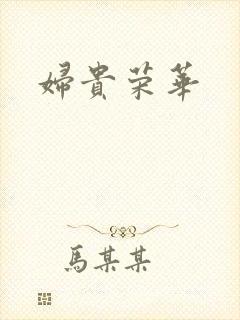 婦貴荣華
馬某某